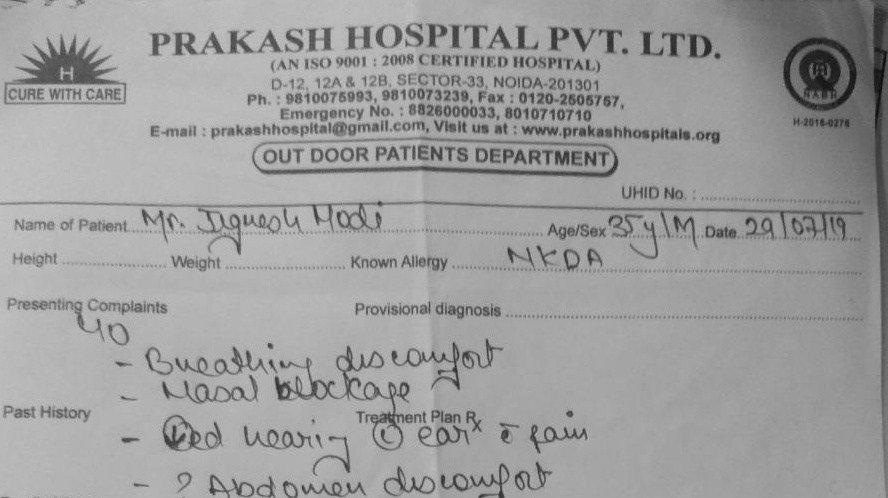 PRAKASH HOSPITAL PVT. LTD.
(AN ISO 9001 : 2008 CERTIFIED HOSPITAL)
H
CURE WITH CARE
D-12, 12A & 12B, SECTOR-33, NOIDA-201301
Ph. : 9810075993, 9810073239, Fax : 0120-2505757,
Emergency No. : 8826000033, 8010710710
E-mail : prakashhospital@gmail.com, Visit us at : www.prakashhospitals.org
NABH
H-2016-0276
OUT DOOR PATIENTS DEPARTMENT
UHID No. :
Name of Patient Mr. Jignesh Modi Age/Sex 35y/M Date 29/07/19
Height Weight Known Allergy NKDA
Presenting Complaints Provisional diagnosis
- Breathing discomfort
- Nasal blockage
Past History Treatment Plan Rx
- ↓ed hearing L ear c̄ pain
- ? Abdomen discomfort